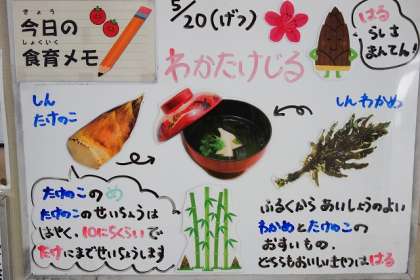 きょう
今日の
しょくいく
食育メモ
5/20(げつ)
わかたけじる
はる
らしさ
まんてん!
しん
たけのこ
しんわかめ
たけのこのめ
たけのこのせいちょうは
はやく、10にちくらいで
たけにまでせいちょうします
ふるくから あいしょうのよい
わかめとたけのこの
おすいもの。
どちらもおいしいきせつははる